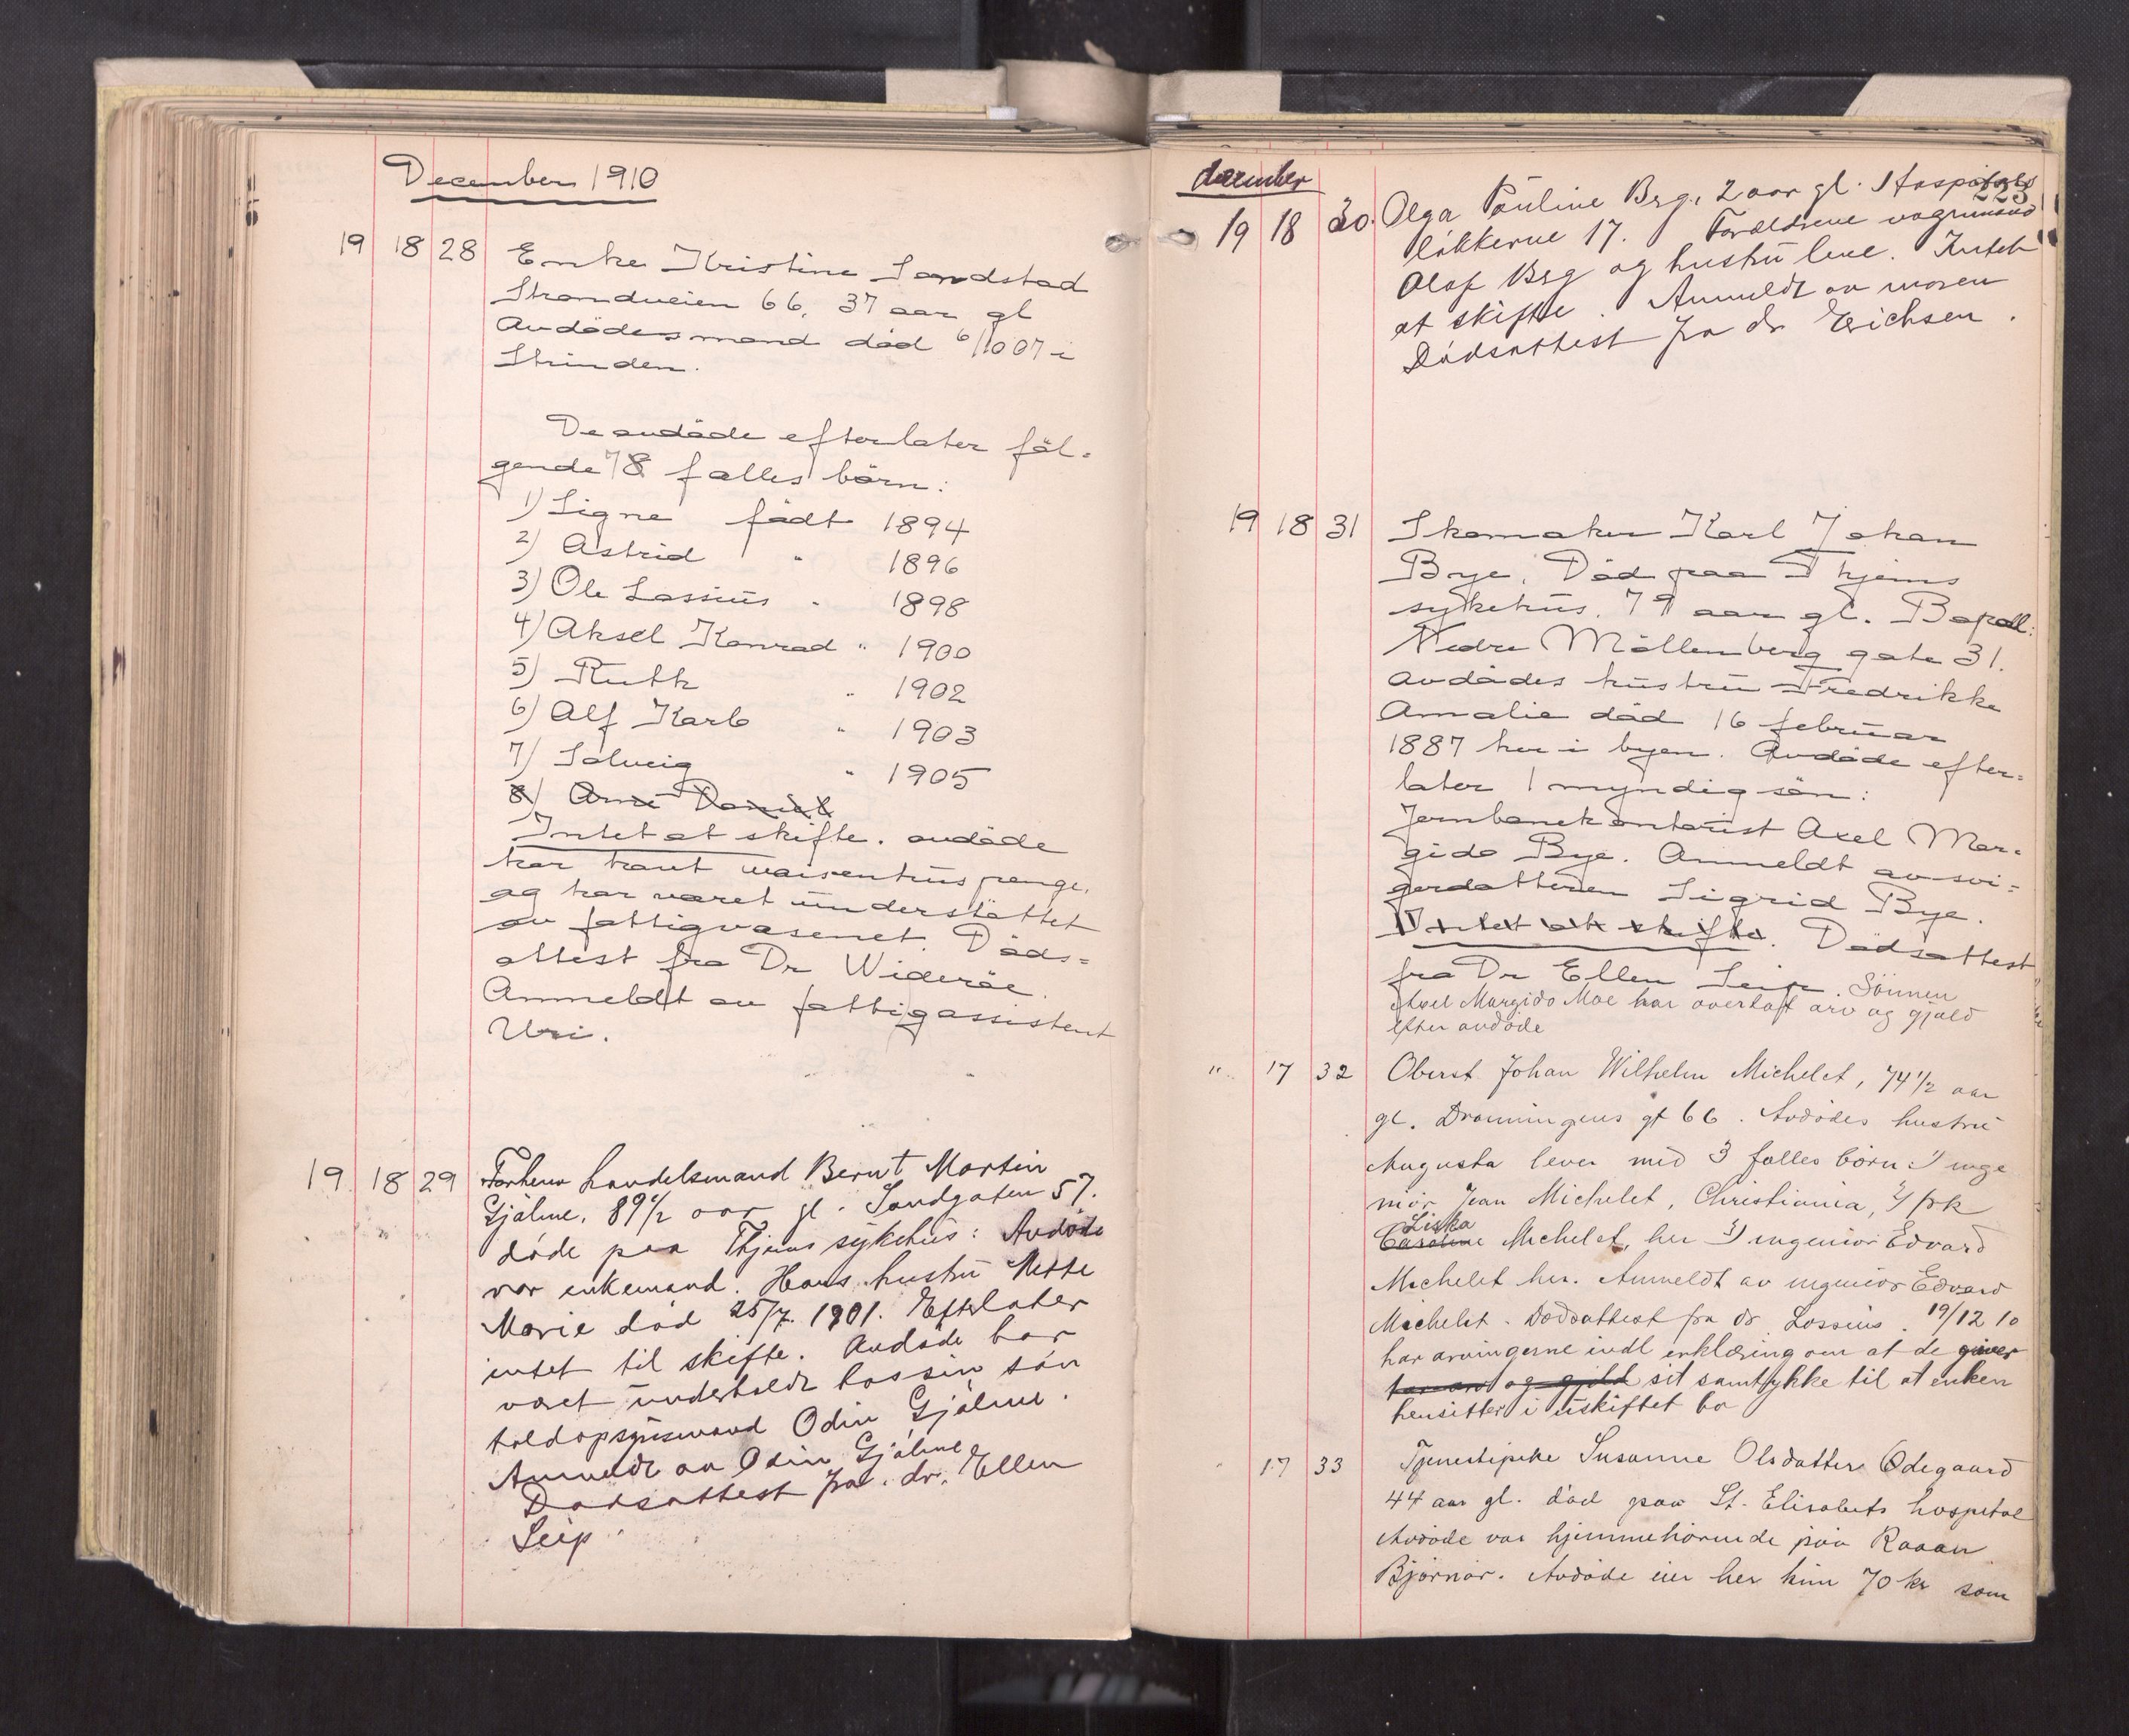 December 1910
19 18 28 Enke Kristine Sandstad
Strandveien 66, 37 aar gl
Avdödes mand död 6/10 07 i
Strinden.
De avdöde efterlater föl-
gende 7 8 fælles börn:
1) Signe födt 1894
2) Astrid " 1896
3) Ole Lassius " 1898
4) Aksel Konrad " 1900
5) Ruth " 1902
6) Alf Karl " 1903
7) Solveig " 1905
8) Arne Daniel
Intet at skifte. avdöde
har havt waisenhuspenge.
og har været understöttet
av fattigvæsenet. Döds-
attest fra Dr Wideröe.
Anmeldt av fattigassistent
Uri.
19 18 29 Forhenv handelsmand Bernt Martin
Gjölme, 89 1/2 aar gl. Sandgaten 57.
döde paa Thjems sykehus: Avdöde
var enkemand. Hans hustru Mette
Marie död 25/7. 1901. Efterlater
intet til skifte. Avdöde har
været underholdt hos sin sön
toldopsynsmand Odin Gjölme.
Anmeldt av Odin Gjölme
Dödsattest fra dr. Ellen
Seip.
december
223
19 18 30. Olga Pauline Berg, 2 aar gl. Hospitals
lökkerne 17. Forældrene vognmand
Olaf Berg og hustru leve. Intet
at skifte. Anmeldt av moren
Dödsattest fra dr Erichsen.
19 18 31 Skomaker Karl Johan
Bye. Död paa Thjems
sykehus. 79 aar gl. Bopæl:
Nedre Möllenberg gate 31.
avdödes hustru Fredrikke
Amalie död 16 februar
1887 her i byen. Avdöde efter-
later 1 myndig sön:
Jernbanekontorist Axel Mar-
gido Bye. Anmeldt av svi-
gerdatteren Sigrid Bye.
Intet at skifte. Dödsattest
fra Dr Ellen Seip. Sönnen
Axel Margido Moe har overtat arv og gjæld
efter avdöde
" 17 32 Oberst Johan Wilhelm Michelet, 74 1/2 aar
gl. Dronningens gt 66. Avdödes hustru
Augusta lever med 3 fælles börn: 1) inge
niör Jean Michelet, Christiania, 2) frk
Liska
Caroline Michelet, her 3) ingeniör Edvard
Michelet her. Anmeldt av ingeniör Edvard
Michelet. Dödsattest fra dr Lossius. 19/12 10
har arvingerne indl erklæring om at de giver
tar arv og gjæld sit samtykke til at enken
hensitter i uskiftet bo
" 17 33 Tjenestepike Susanne Olsdatter Ödegaard
44 aar gl. död paa St. Elisabets hospital
Avdöde var hjemmehörende paa Raaan
Björnör. Avdöde eier her kun 70 kr som